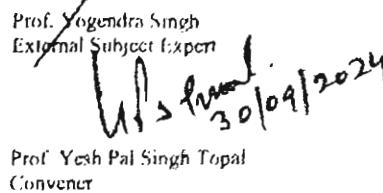 Prof. Yogendra Singh
External Subject Expert
30/09/2024
Prof Yash Pal Singh Topal
Convener